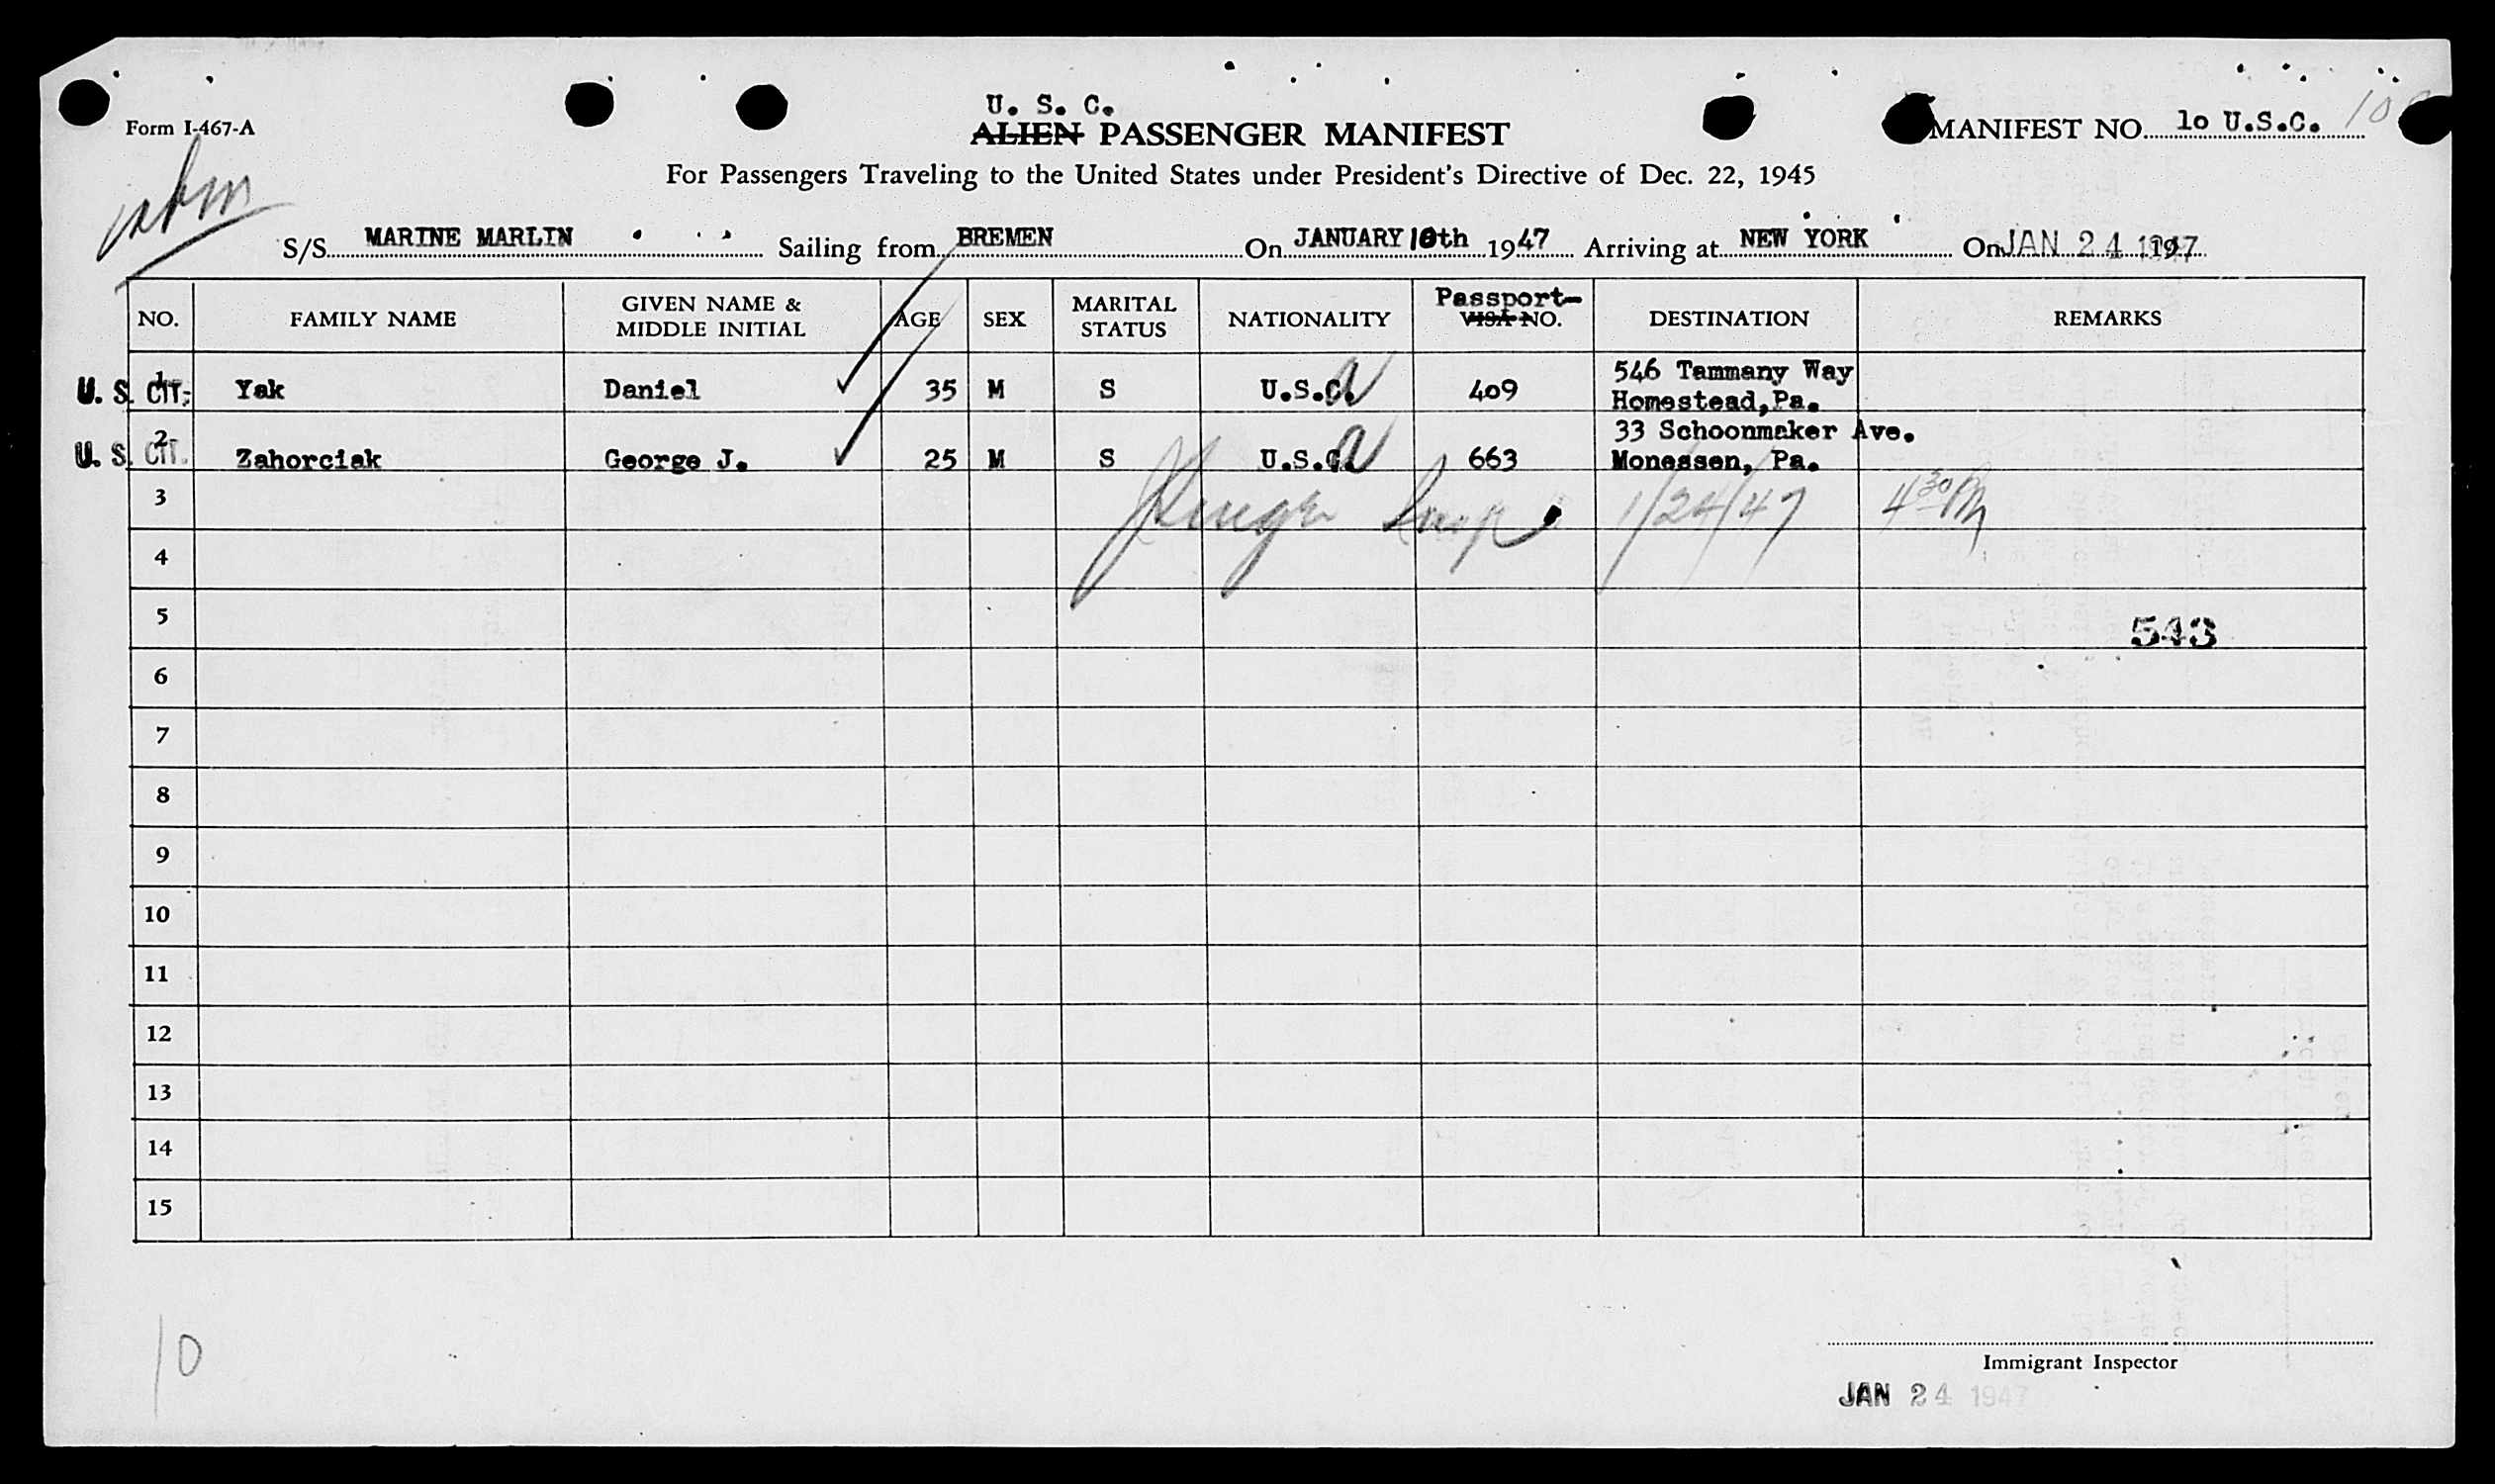 U. S. C.
Form I-467-A
ALIEN PASSENGER MANIFEST
MANIFEST NO. 10 U.S.C. 10
For Passengers Traveling to the United States under President's Directive of Dec. 22, 1945
S/S MARINE MARLIN Sailing from BREMEN On JANUARY 10th 1947 Arriving at NEW YORK On JAN 24 1947
NO. FAMILY NAME GIVEN NAME & MIDDLE INITIAL AGE SEX MARITAL STATUS NATIONALITY Passport- VISA NO. DESTINATION REMARKS
U. S. CIT. 1 Yak Daniel 35 M S U.S.C. 409 546 Tammany Way Homestead,Pa.
U. S. CIT. 2 Zahorciak George J. 25 M S U.S.C. 663 33 Schoonmaker Ave. Monessen, Pa.
3 Insp. 1/24/47 4 30 PM
4
5 543
6
7
8
9
10
11
12
13
14
15
10
Immigrant Inspector
JAN 24 1947